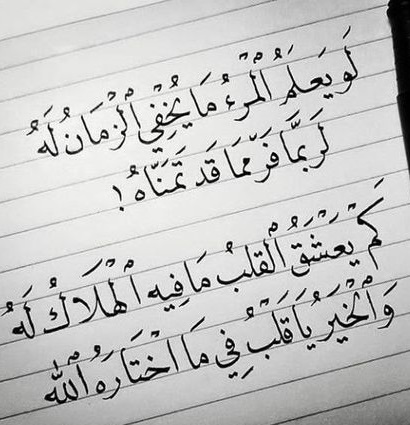 لَو يَعلَمُ الْمَرءُ مَا يُخفِي الْزَمَانُ لَهُ
لَرُبَّمَا فَرَّ مِمَا قَد تَمَنَّاهُ !
كَمْ يَعْشَقُ الْقَلبُ مَا فِيهِ الْهَلَاكُ لَهُ
وَالْخَيرُ يَا قَلبُ فِي مَا اخْتَارَهُ اللّٰه